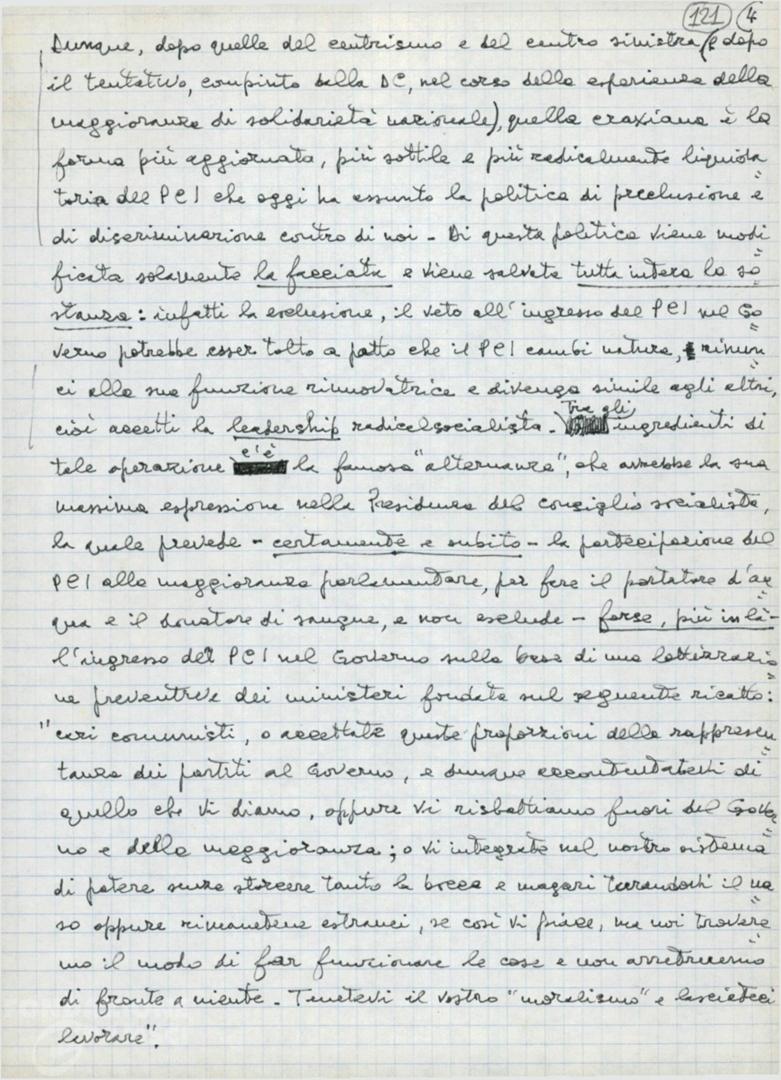 121 4
Dunque, dopo quelle del centrismo e del centro sinistra (e dopo
il tentativo, compiuto dalla DC, nel corso della esperienza della
maggioranza di solidarietà nazionale), quella craxiana è la
forma più aggiornata, più sottile e più radicalmente liquida=
toria del PCI che oggi ha assunto la politica di preclusione e
di discriminazione contro di noi - Di questa politica viene modi=
ficata solamente la facciata e viene salvata tutta intera la so=
stanza: infatti la esclusione, il veto all'ingresso del PCI nel Go=
verno potrebbe esser tolto a patto che il PCI cambi natura, rinun=
ci alla sua funzione rinnovatrice e divenga simile agli altri,
cioè accetti la leadership radicalsocialista. Tra gli ingredienti di
tale operazione c'è la famosa "alternanza", che avrebbe la sua
massima espressione nella Presidenza del consiglio socialista,
la quale prevede - certamente e subito - la partecipazione del
PCI alla maggioranza parlamentare, per fare il portatore d'ac=
qua e il donatore di sangue, e non esclude - forse, più in là -
l'ingresso del PCI nel Governo sulla base di una lottizzazio=
ne preventiva dei ministeri fondata sul seguente ricatto:
"cari comunisti, o accettate queste proporzioni della rappresen=
tanza dei partiti al Governo, e dunque accontentatevi di
quello che vi diamo, oppure vi risbattiamo fuori dal Gover=
no e dalla maggioranza; o vi integrate nel nostro sistema
di potere senza storcere tanto la bocca e magari turandovi il na=
so oppure rimanetene estranei, se così vi piace, ma noi trovere=
mo il modo di far funzionare le cose e non arretreremo
di fronte a niente - Tenetevi il vostro "moralismo" e lasciateci
lavorare".